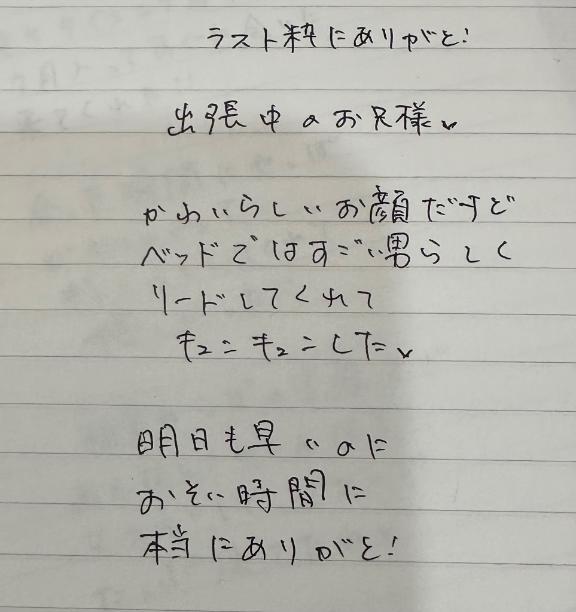 ラスト枠にありがと!
出張中のお兄様♥
かわいらしいお顔だけど
ベッドではすごい男らしく
リードしてくれて
キュンキュンした♥
明日も早いのに
おそい時間に
本当にありがと!